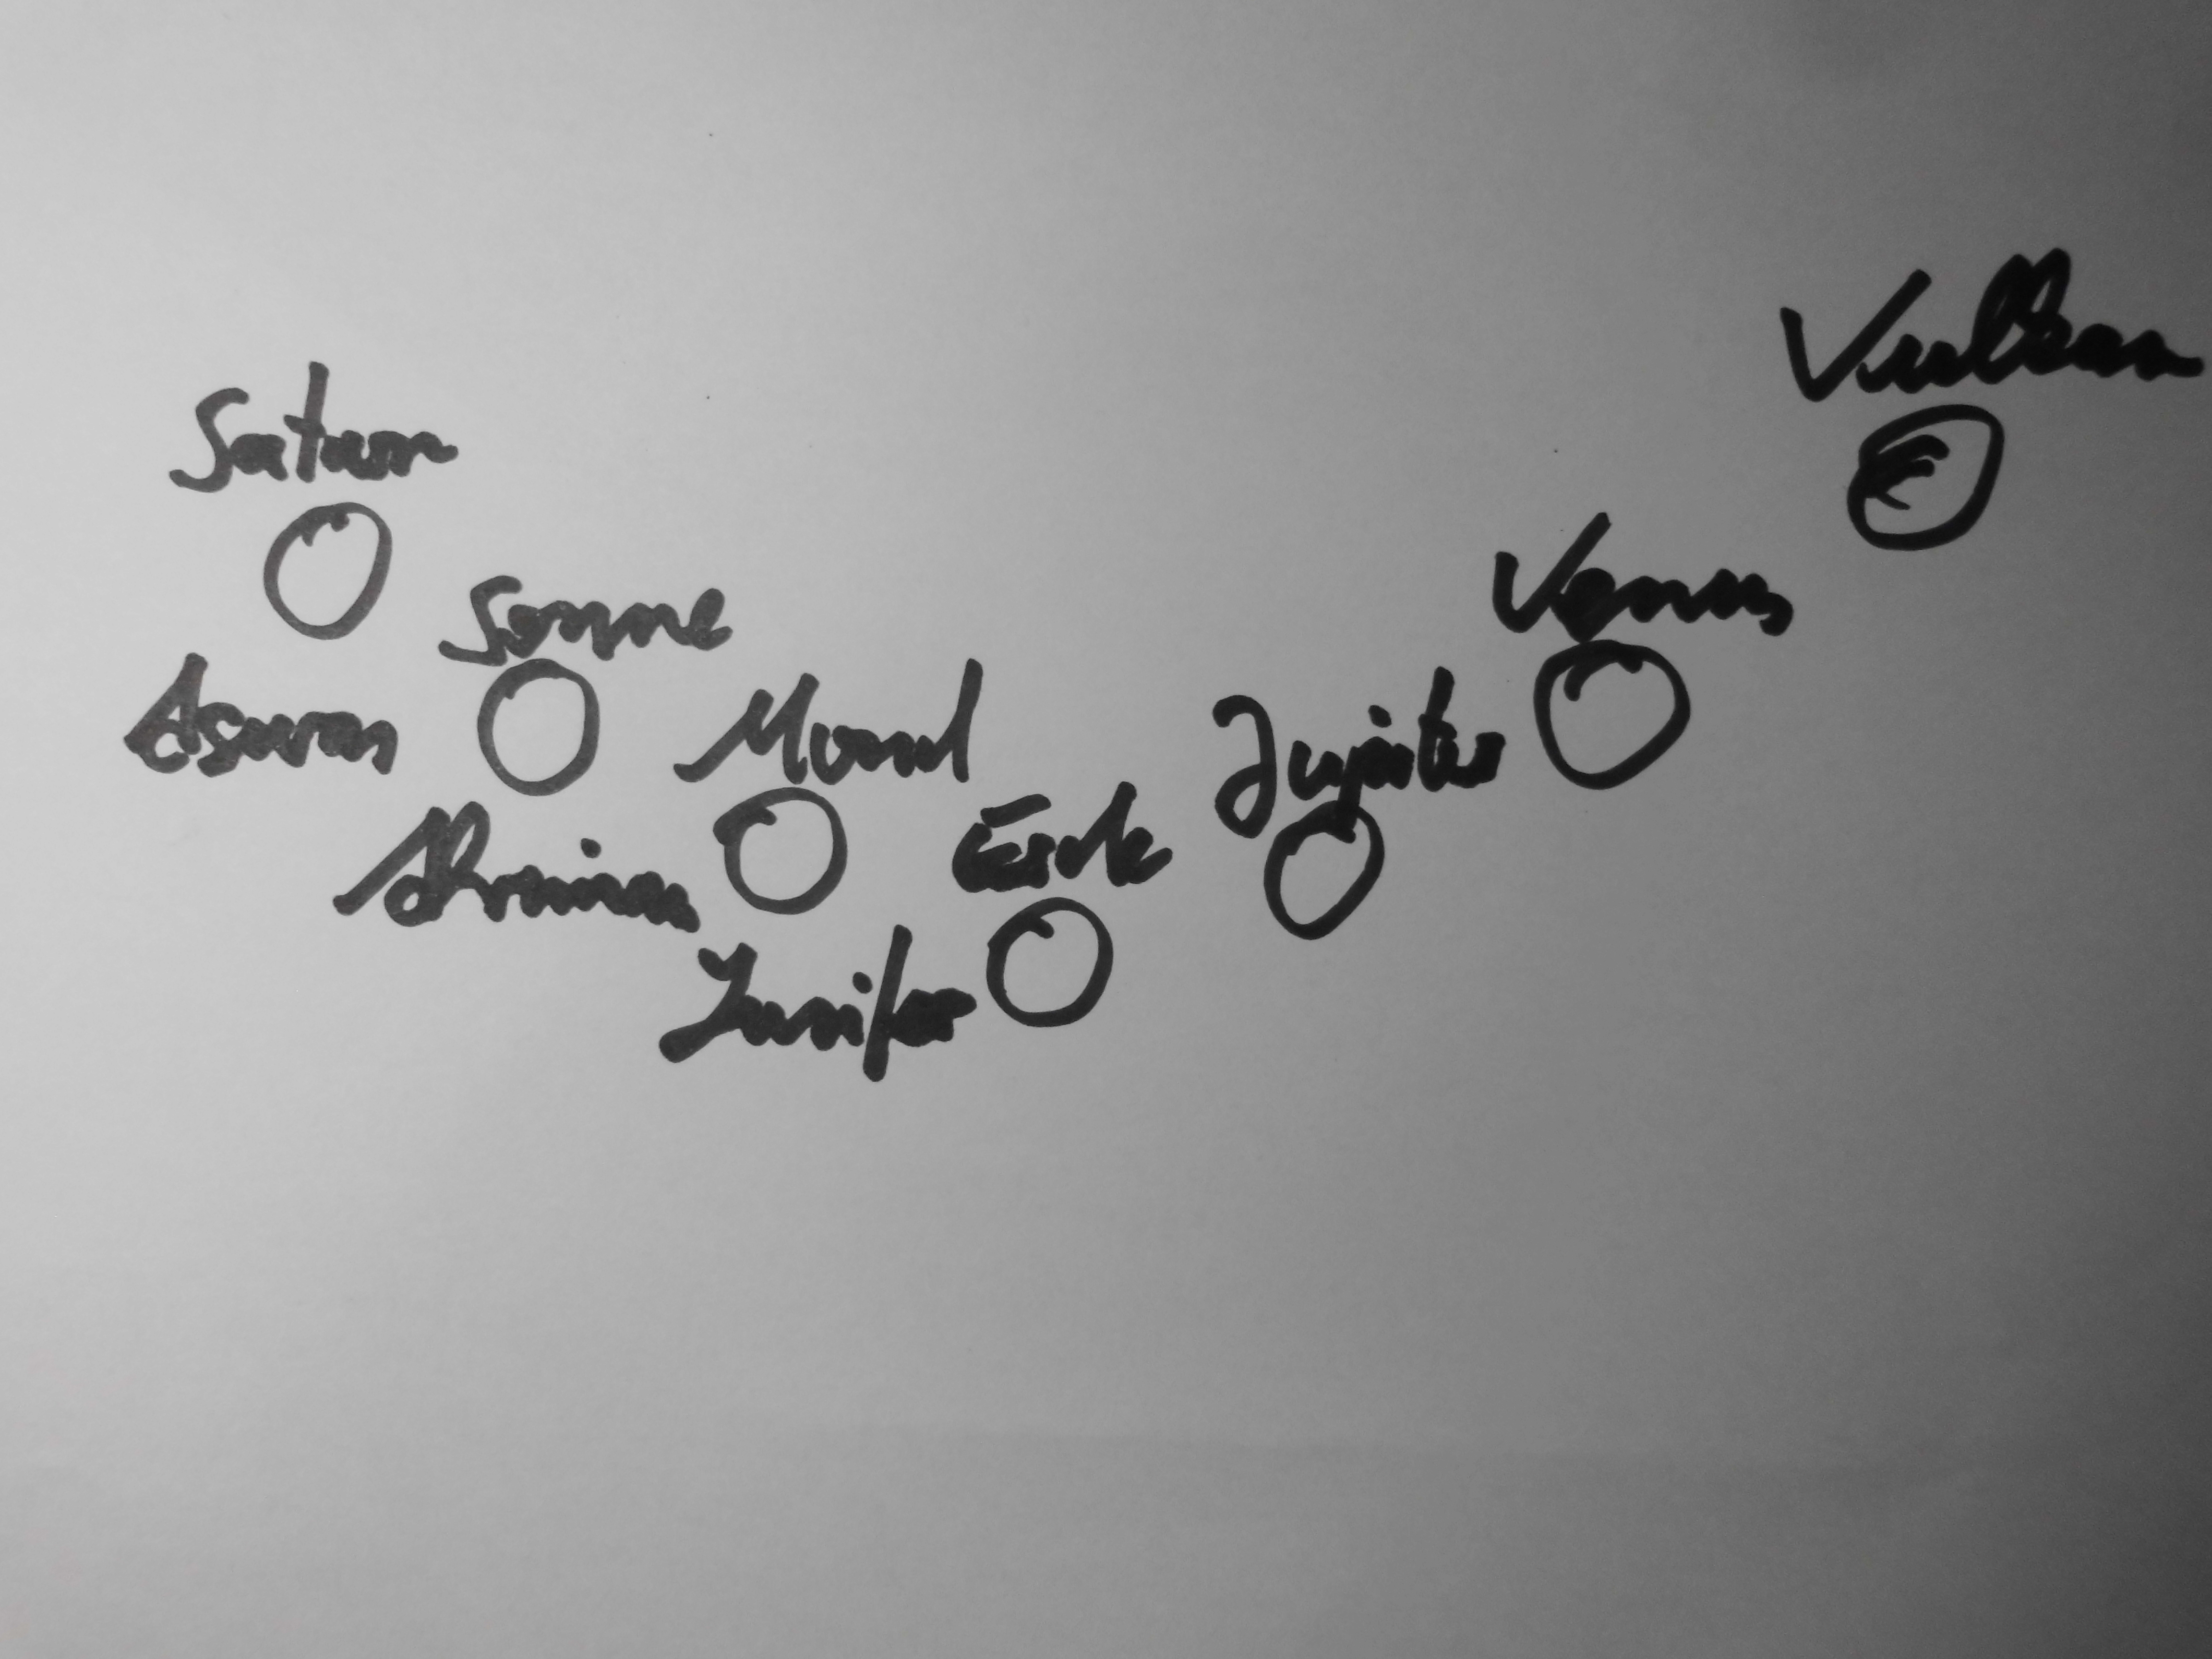 Vulkan
Saturn
Venus
Sonne
Asuras
Mond
Jupiter
Erde
Ahriman
Luzifer